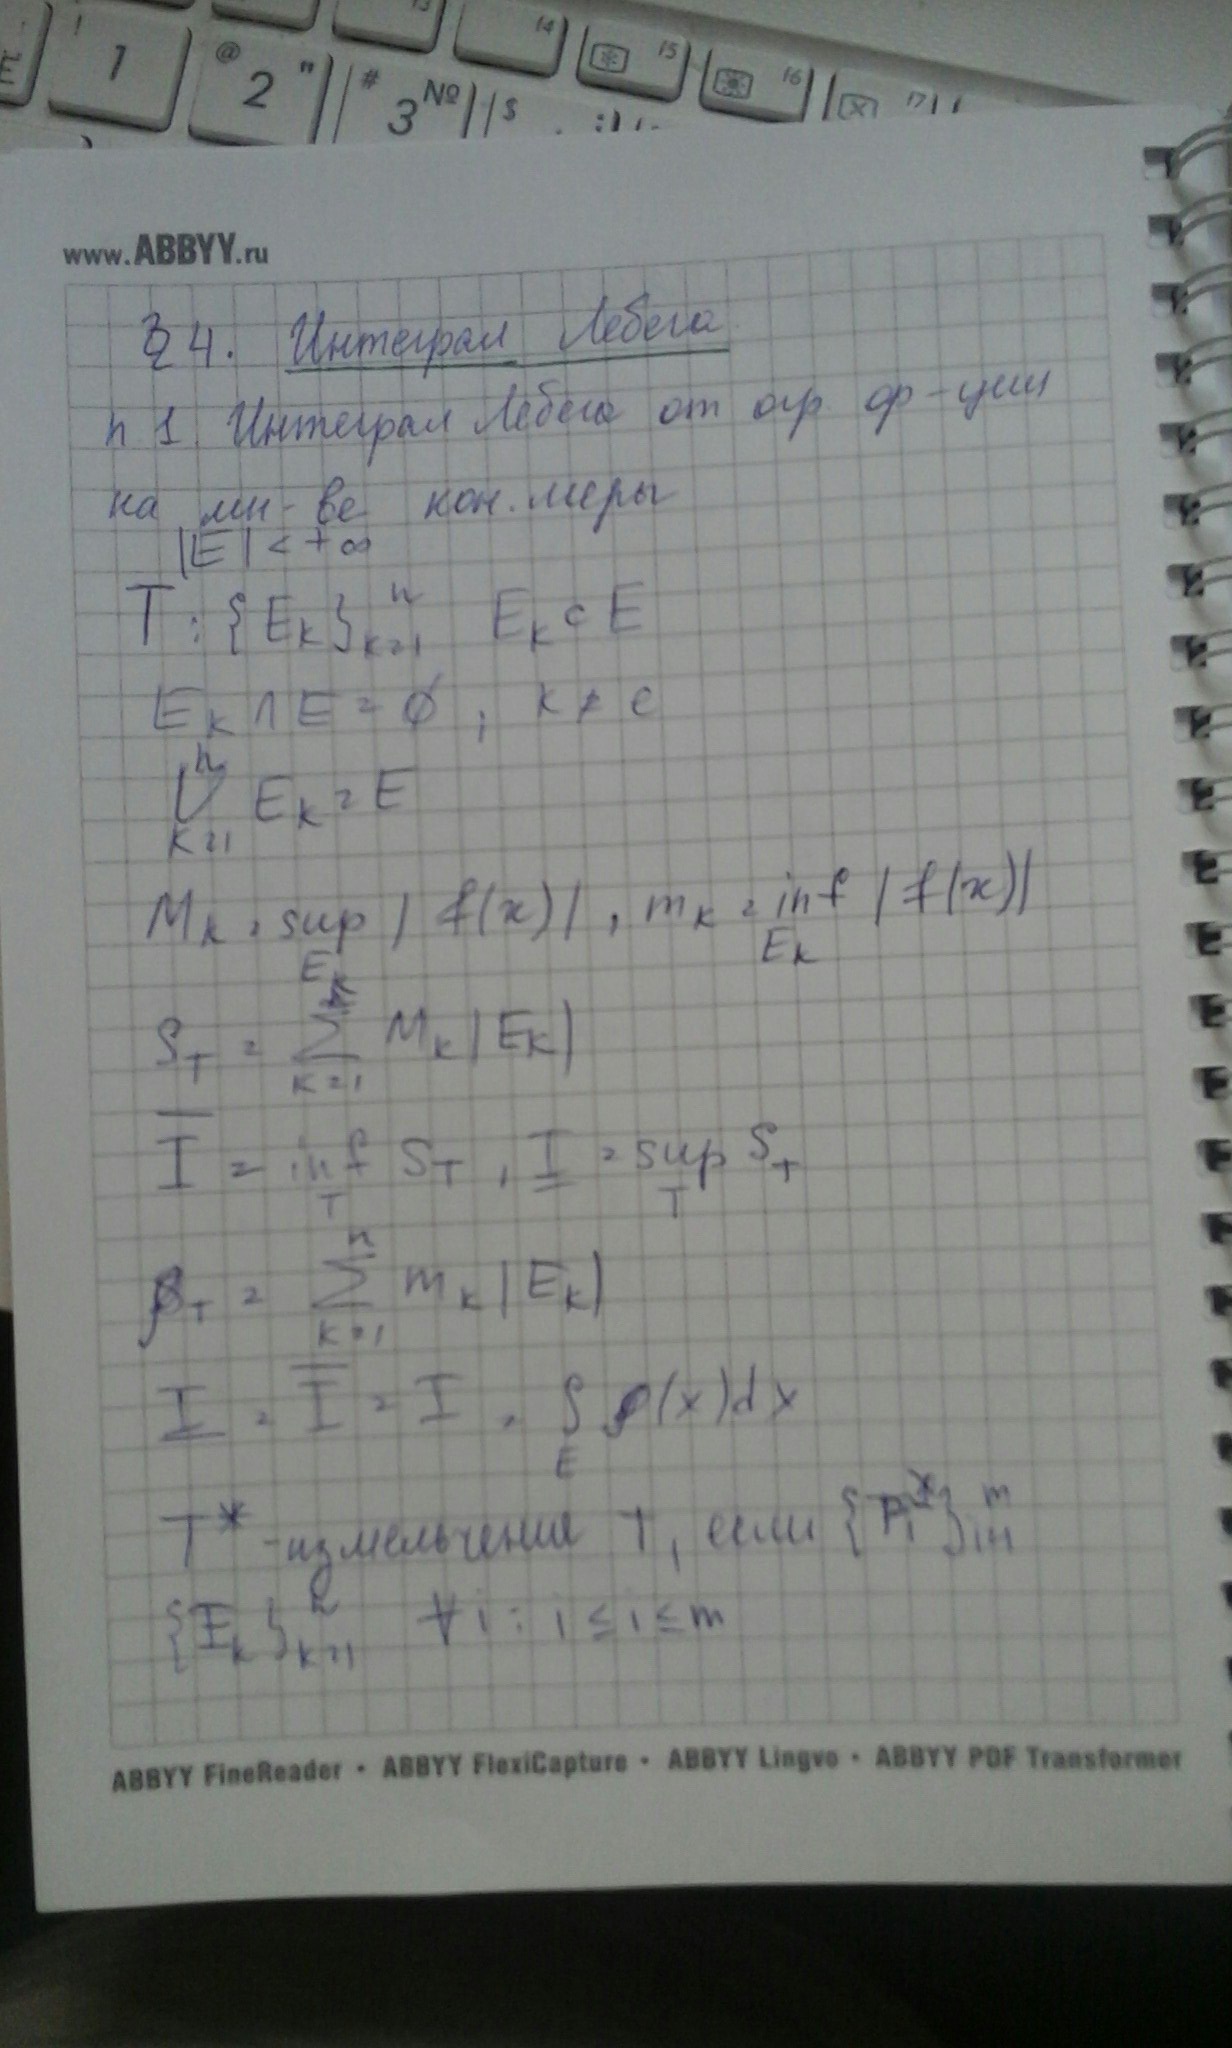 1 @ 2 " # 3 № $ 14 15 16 17
www.ABBYY.ru
§ 4. Интеграл Лебега
п 1 Интеграл Лебега от огр ф-ции
на мн-ве кон. меры
|E| < +∞
T: {E_k}_{k=1}^n E_k ⊂ E
E_k ∩ E = ∅, k ≠ e
⋃_{k=1}^n E_k = E
M_k = sup_{E_k} |f(x)|, m_k = inf_{E_k} |f(x)|
S_T = ∑_{k=1}^n M_k |E_k|
Ī = inf_T S_T, I̲ = sup_T S_T
s_T = ∑_{k=1}^n m_k |E_k|
I̲ = Ī = I = ∫_E f(x)dx
T* - измельчение T, если {E_i*}_{i=1}^m
{E_k}_{k=1}^n ∀ i : i ≤ i ≤ m
ABBYY FineReader • ABBYY FlexiCapture • ABBYY Lingvo • ABBYY PDF Transformer